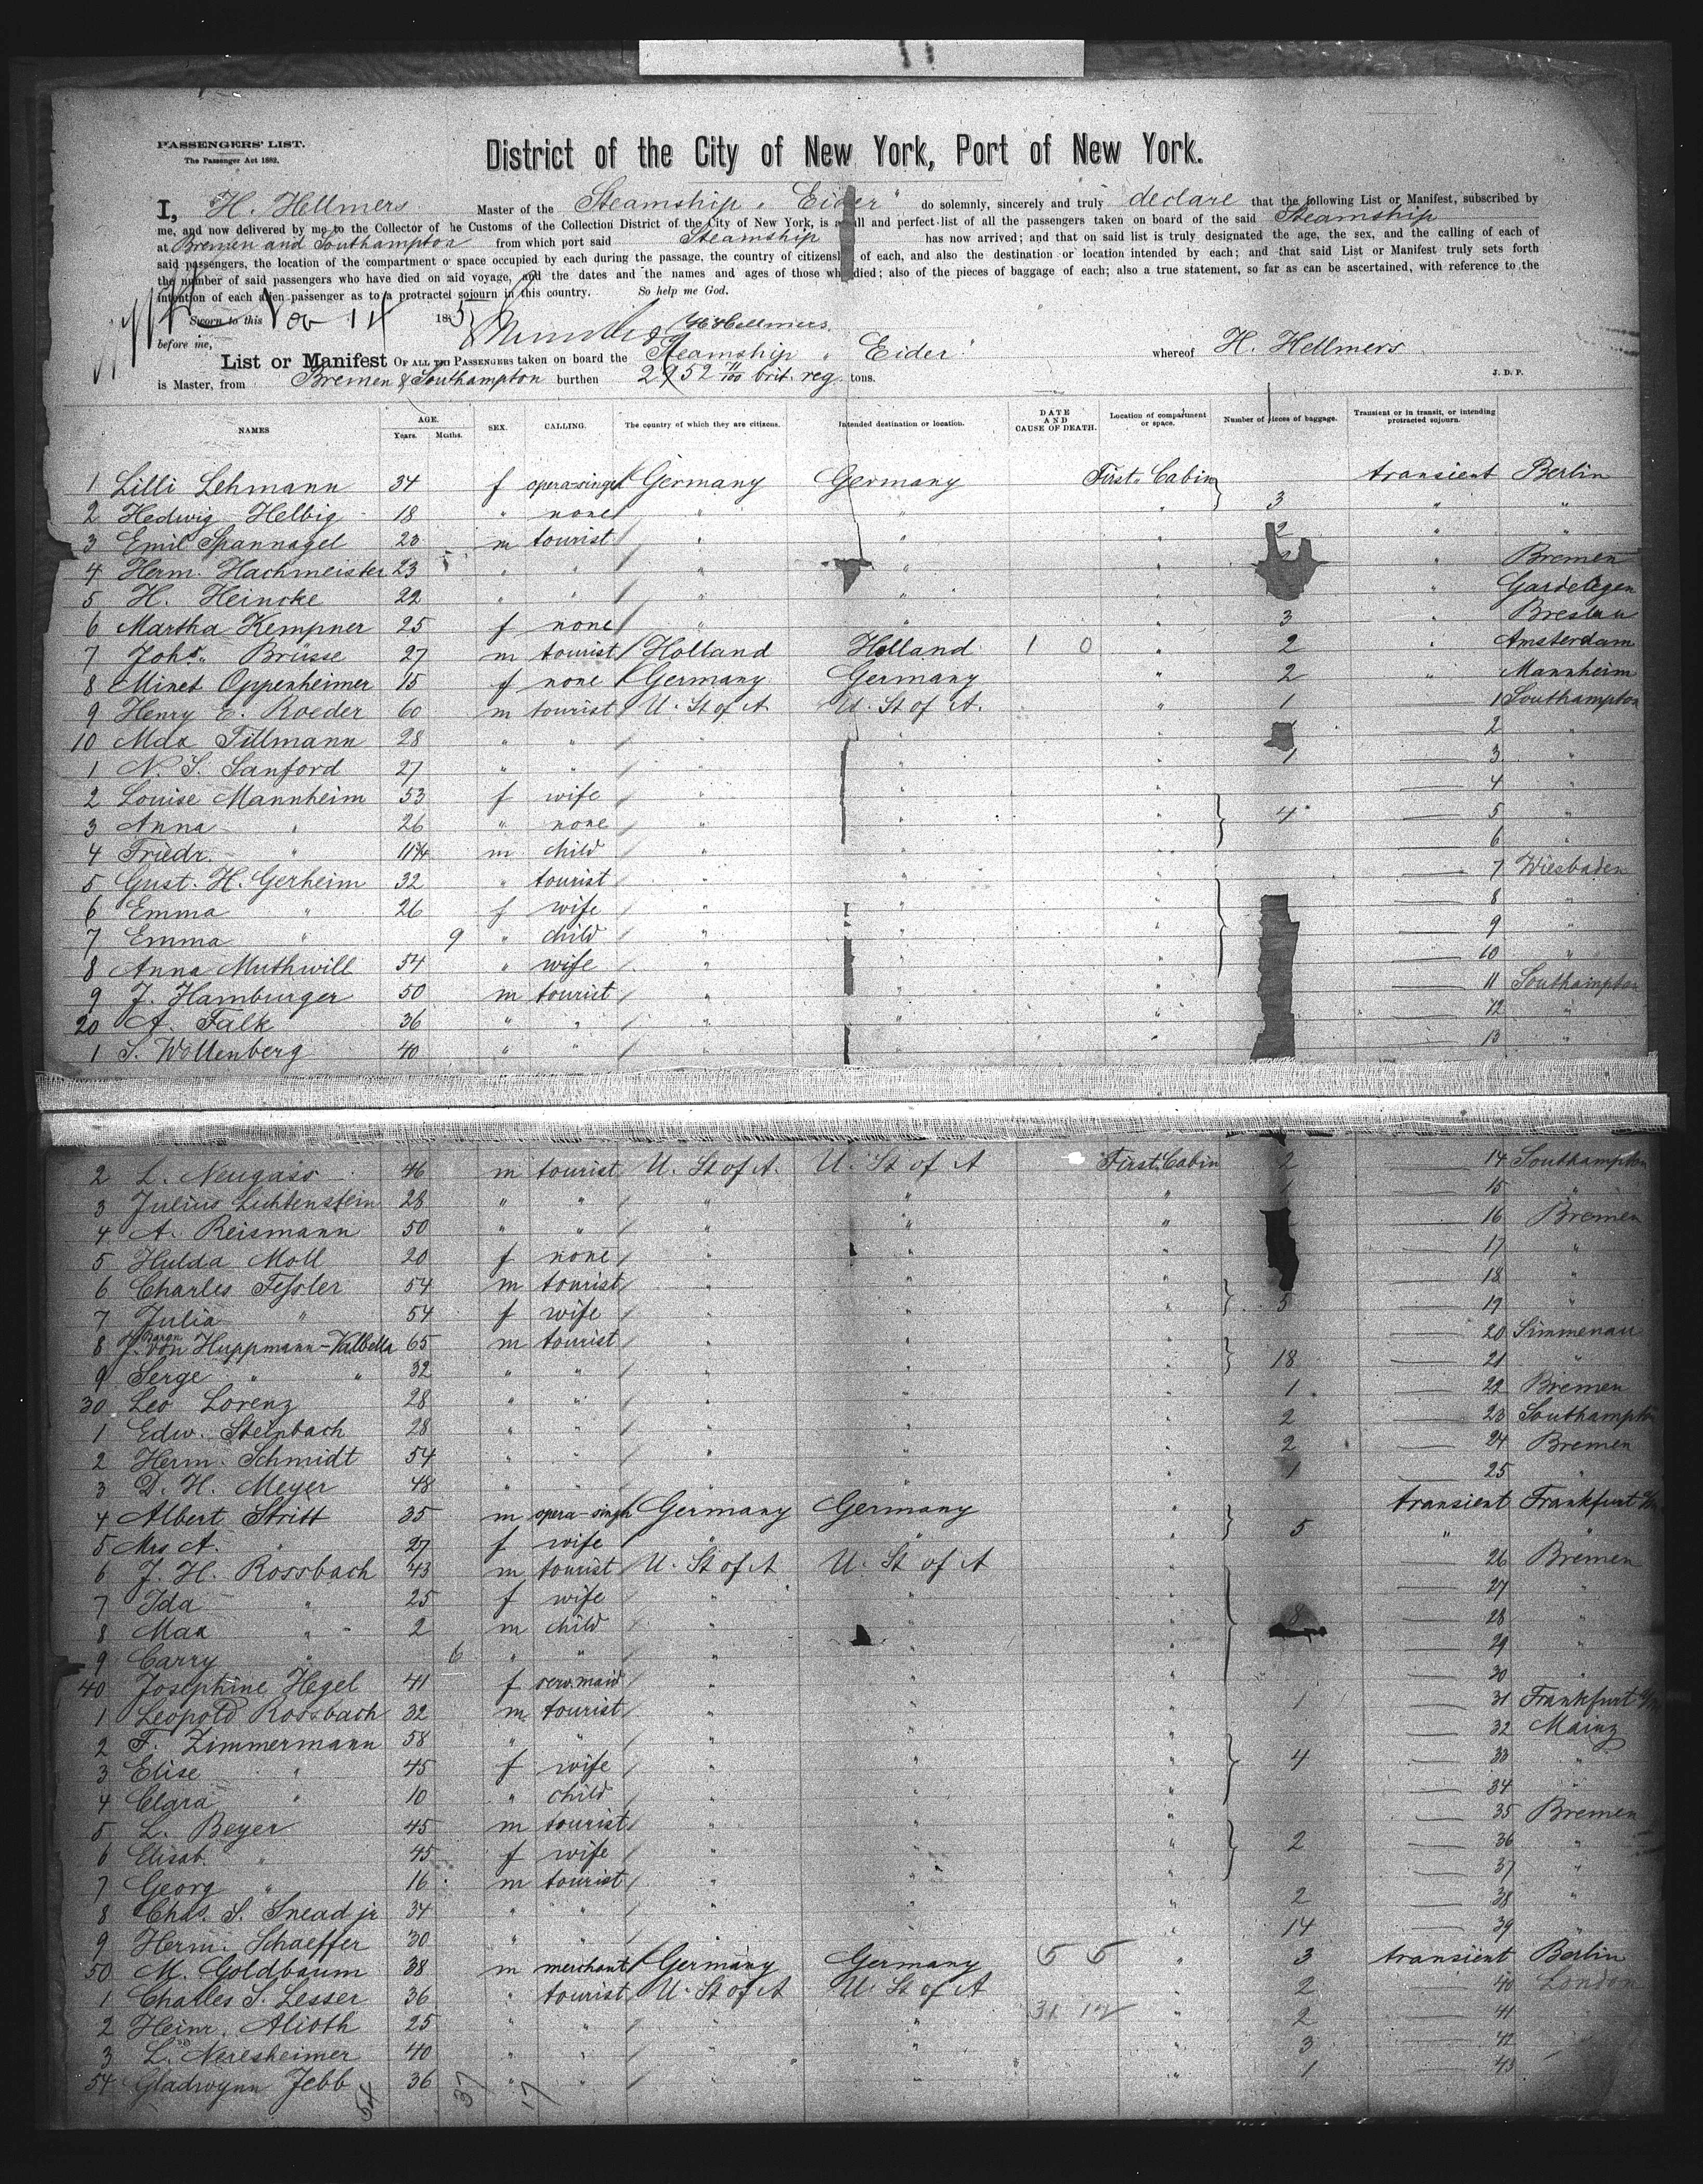 PASSENGERS' LIST.
The Passenger Act 1882.
District of the City of New York, Port of New York.
I, H. Hellmers Master of the Steamship "Eider" do solemnly, sincerely and truly declare that the following List or Manifest, subscribed by
me, and now delivered by me to the Collector of he Customs of the Collection District of the City of New York, is a all and perfect list of all the passengers taken on board of the said Steamship
at Bremen and Southampton from which port said Steamship has now arrived; and that on said list is truly designated the age, the sex, and the calling of each of
said passengers, the location of the compartment or space occupied by each during the passage, the country of citizens of each, and also the destination or location intended by each; and that said List or Manifest truly sets forth
the number of said passengers who have died on said voyage, and the dates and the names and ages of those wh died; also of the pieces of baggage of each; also a true statement, so far as can be ascertained, with reference to the
intention of each alien passenger as to a protracted sojourn in this country. So help me God.
Sworn to this Nov 14 1885
before me, H. Hellmers
List or Manifest OF ALL THE PASSENGERS taken on board the Steamship "Eider" whereof H. Hellmers
is Master, from Bremen & Southampton burthen 2952 11/100 brit. reg. tons. J. D. P.
NAMES AGE. Years. Mnths. SEX. CALLING. The country of which they are citizens. Intended destination or location. DATE AND CAUSE OF DEATH. Location of compartment or space. Number of pieces of baggage. Transient or in transit, or intending protracted sojourn.
1 Lilli Lehmann 34 f opera-singer Germany Germany First Cabin transient Berlin
2 Hedwig Helbig 18 " none " " " 3 " "
3 Emil Spannagel 23 m tourist " " " 2 " "
4 Herm. Hachmeister 23 " " " " " " Bremen
5 H. Heincke 22 " " " " " " Gardelegen
6 Martha Kempner 25 f none " " " 3 " Breslau
7 Johs. Brüsse 27 m tourist Holland Holland 1 0 " 2 " Amsterdam
8 Minet Oppenheimer 15 f none Germany Germany " 2 " Mannheim
9 Henry E. Roeder 60 m tourist U. St of A. U. St of A. " 1 — 1 Southampton
10 Max Tillmann 28 " " " " " — 2 "
1 N. S. Sanford 27 " " " " " 1 — 3 "
2 Louise Mannheim 53 f wife " " " — 4 "
3 Anna " 26 " none " " " 4 — 5 "
4 Friedr. " 11¾ m child " " " — 6 "
5 Gust. H. Gerheim 32 " tourist " " " — 7 Wiesbaden
6 Emma " 26 f wife " " " — 8 "
7 Emma " 9 " child " " " — 9 "
8 Anna Muthwill 54 " wife " " " — 10 "
9 J. Hamburger 50 m tourist " " " — 11 Southampton
20 A. Falk 36 " " " " " — 12 "
1 S. Wollenberg 40 " " " " " — 13 "
2 L. Neugass 46 m tourist U. St of A. U. St of A First Cabin 2 — 14 Southampton
3 Julius Lichtenstein 28 " " " " " 1 — 15 "
4 A. Reismann 50 " " " " " — 16 Bremen
5 Hulda Moll 20 f none " " " — 17 "
6 Charles Fessler 54 m tourist " " " — 18 "
7 Julia " 54 f wife " " " 5 — 19 "
8 J. Baron von Huppmann-Valbella 65 m tourist " " " — 20 Simmenau
9 Serge " " 32 " " " " " 18 — 21 "
30 Leo Lorenz 28 " " " " " 1 — 22 Bremen
1 Edw. Steinbach 28 " " " " " 2 — 23 Southampton
2 Herm. Schmidt 54 " " " " " 2 — 24 Bremen
3 D. H. Meyer 48 " " " " " 1 — 25 "
4 Albert Stritt 35 m opera-singer Germany Germany " transient Frankfurt a/M
5 Mrs A. " 27 f wife " " " 5 " "
6 J. H. Rossbach 43 m tourist U. St of A U. St of A " — 26 Bremen
7 Ida " 25 f wife " " " — 27 "
8 Max " 2 m child " " " 8 — 28 "
9 Carry " 6 " " " " " — 29 "
40 Josephine Hegel 41 f serv. maid " " " — 30 "
1 Leopold Rossbach 32 m tourist " " " 1 — 31 Frankfurt a/M
2 F. Zimmermann 58 " " " " " — 32 Mainz
3 Elise " 45 f wife " " " 4 — 33 "
4 Clara " 10 " child " " " — 34 "
5 L. Beyer 45 m tourist " " " — 35 Bremen
6 Elisab. " 45 f wife " " " 2 — 36 "
7 Georg " 16 m tourist " " " — 37 "
8 Chas. S. Snead jr 34 " " " " " 2 — 38 "
9 Herm. Schaeffer 30 " " " " " 14 — 39 "
50 M. Goldbaum 38 m merchant Germany Germany 5 5 " 3 transient Berlin
1 Charles S. Lesser 36 " tourist U. St of A U. St of A " 2 — 40 London
2 Heinr. Alioth 25 " " " " 31 12 " 2 — 41
3 L. Neresheimer 40 " " " " " 3 — 42
54 Gladwynn Jebb 36 " " " " " 1 — 43
54 37 17